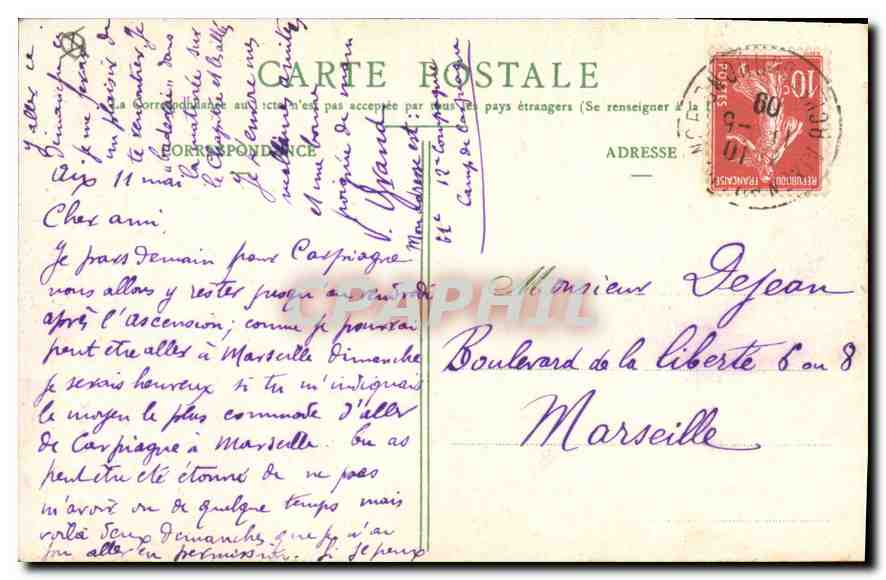 CARTE POSTALE
La Correspondance au recto n'est pas acceptée par tous les pays étrangers (Se renseigner à la
CORRESPONDANCE
ADRESSE
Aix 11 mai
Cher ami
Je pars demain pour Carpiagne
nous allons y rester jusqu'au vendredi
après l'ascension; comme je pourrai
peut être aller à Marseille dimanche
je serais heureux si tu m'indiquais
le moyen le plus commode d'aller
de Carpiagne à Marseille. Tu as
peut être été étonné de ne pas
m'avoir vu de quelque temps mais
voilà deux dimanches que je n'ai
pu aller en permission. Si je peux
y aller ce
Dimanche
je me ferai
un plaisir de
te rencontrer je
dans
la matinée sur
le
Je t'envoie mes
meilleures amitiés
et une bonne
poignée de main
Mon adresse est:
61e 12e Compagnie
Camp de Carpiagne
Monsieur Dejean
Boulevard de la liberté 6 ou 8
Marseille
10c
POSTES
REPUBLIQUE FRANÇAISE
10 -5
09
CPAPHIL